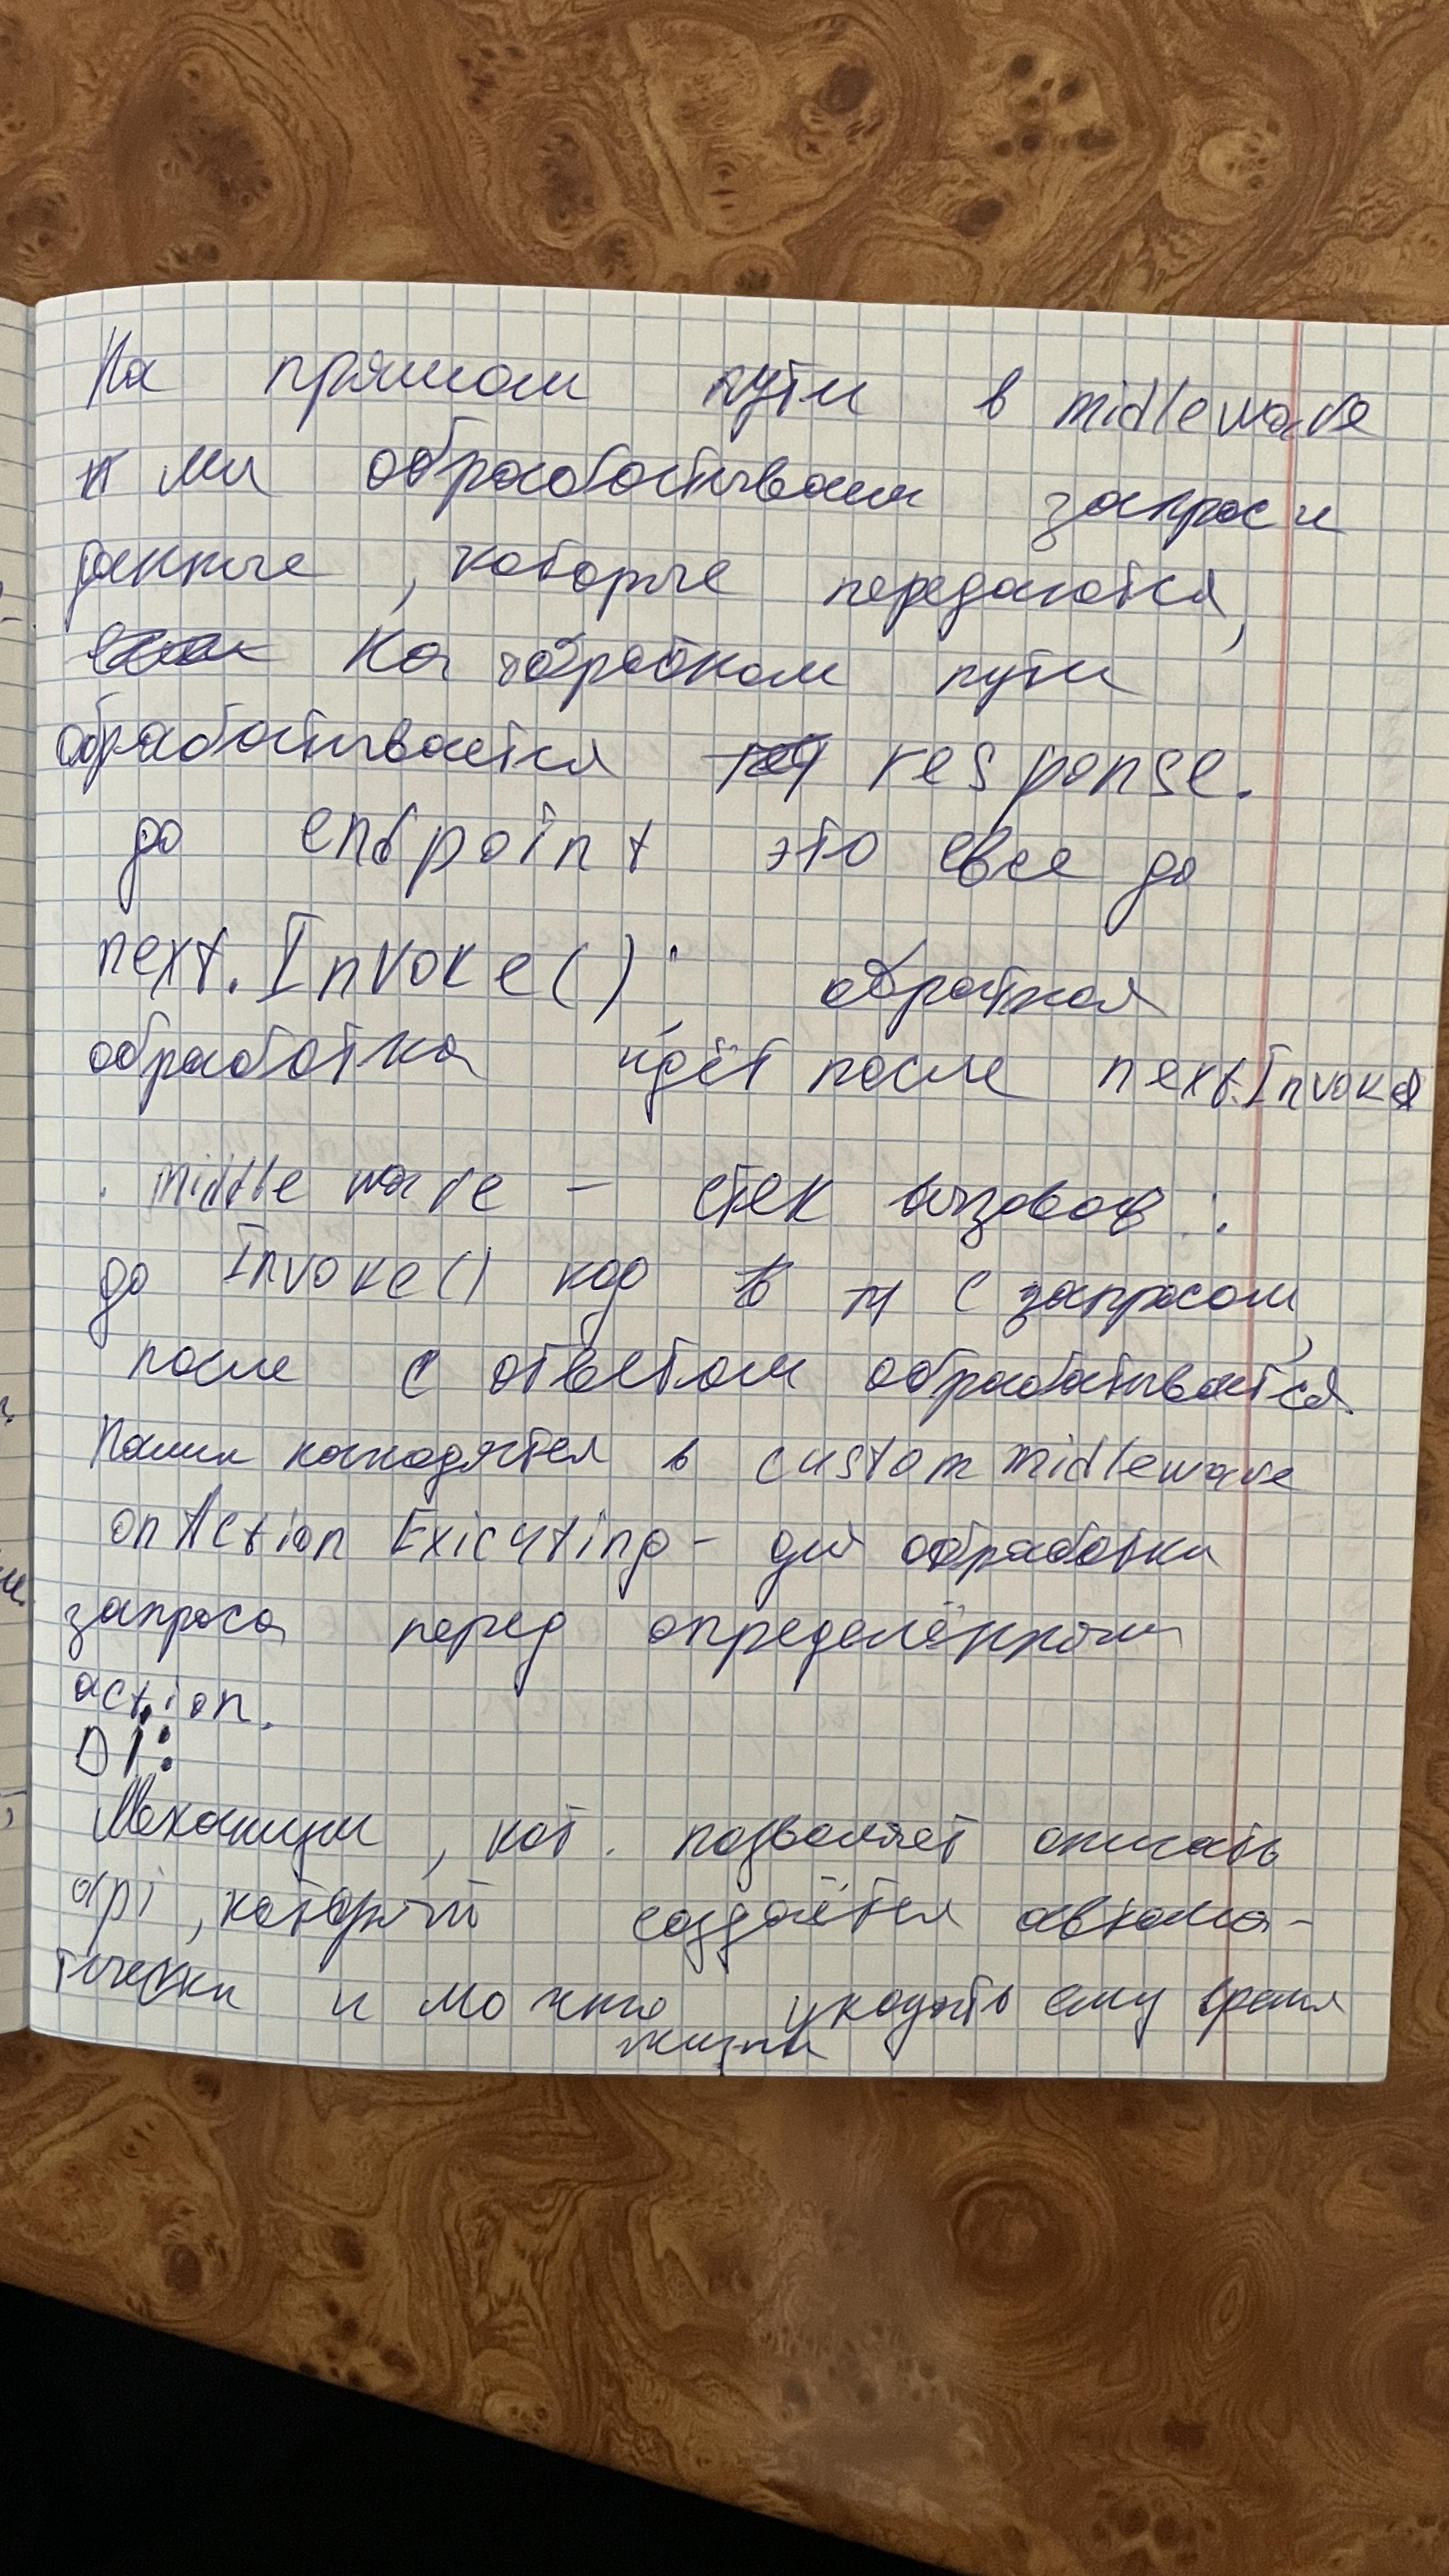 На прямом пути в midleware
мы обрабатываем запрос и
данные, которые передаются,
На обратном пути
обрабатывается response.
до endpoint это все до
next.Invoke(); обратная
обработка идёт после next.Invoke
middleware – стек вызовов:
до Invoke() код с запросом,
после с ответом обрабатывается.
находятся в custom midleware
onAction Exicuting – для обработки
запроса перед определённым
action.
DI:
Механизм, кот. позволяет описать
api, который создаётся автома-
тически и можно указать ему время
жизни